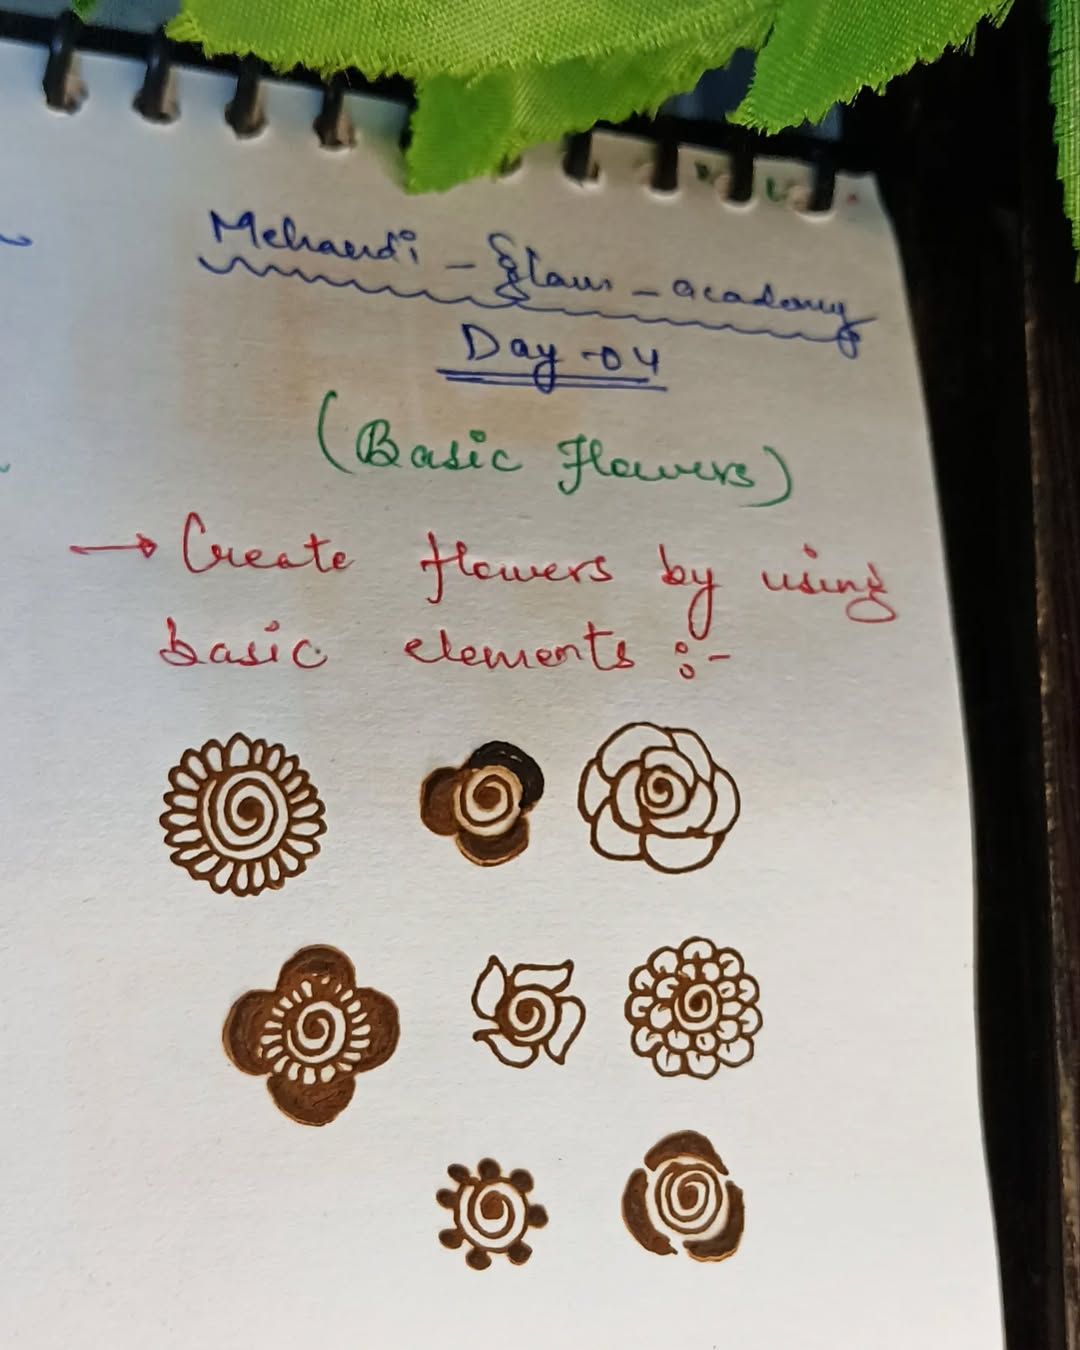 Mehandi - Glam - academy
Day - 04
(Basic Flowers)
→ Create flowers by using
basic elements :-